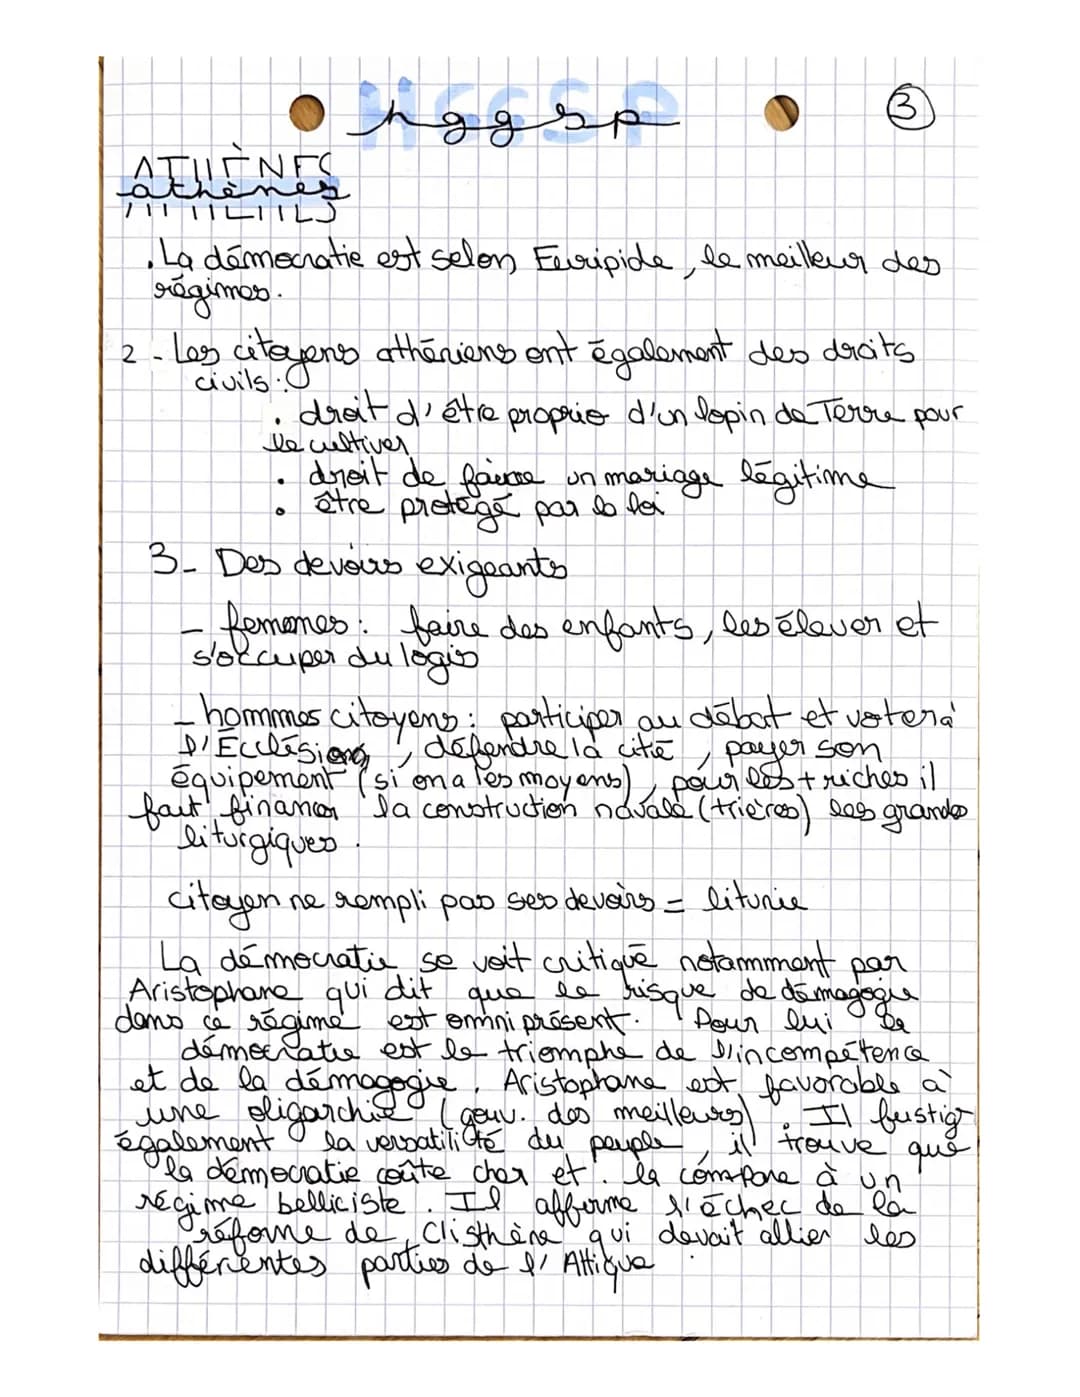 HGGSP
hggsp
3
ATHÈNES
athènes
. La démocratie est selon Euripide, le meilleur des
régimes.
2 - Les citoyens athéniens ont également des droits
civils :
. droit d'être proprio d'un lopin de Terre pour
le cultiver
. droit de faire un mariage légitime
. être protégé par la loi
3 - Des devoirs exigeants
- femmes : faire des enfants, les élever et
s'occuper du logis
- hommes citoyens : participer au débat et voter à
l'Ecclésia, défendre la cité, payer son
équipement (si on a les moyens), pour les + riches il
faut financer la construction navale (trières) les grandes
liturgiques.
citoyen ne rempli pas ses devoirs = liturie
La démocratie se voit critiqué notamment par
Aristophane qui dit que le risque de démagogie
dans ce régime est omniprésent. Pour lui la
démocratie est le triomphe de l'incompétence
et de la démagogie. Aristophane est favorable à
une oligarchie (gouv. des meilleurs). Il fustige
également la versatilité du peuple, il trouve que
la démocratie coûte cher et la compare à un
régime belliciste. Il affirme l'échec de la
réforme de Clisthène qui devait allier les
différentes parties de l'Attique